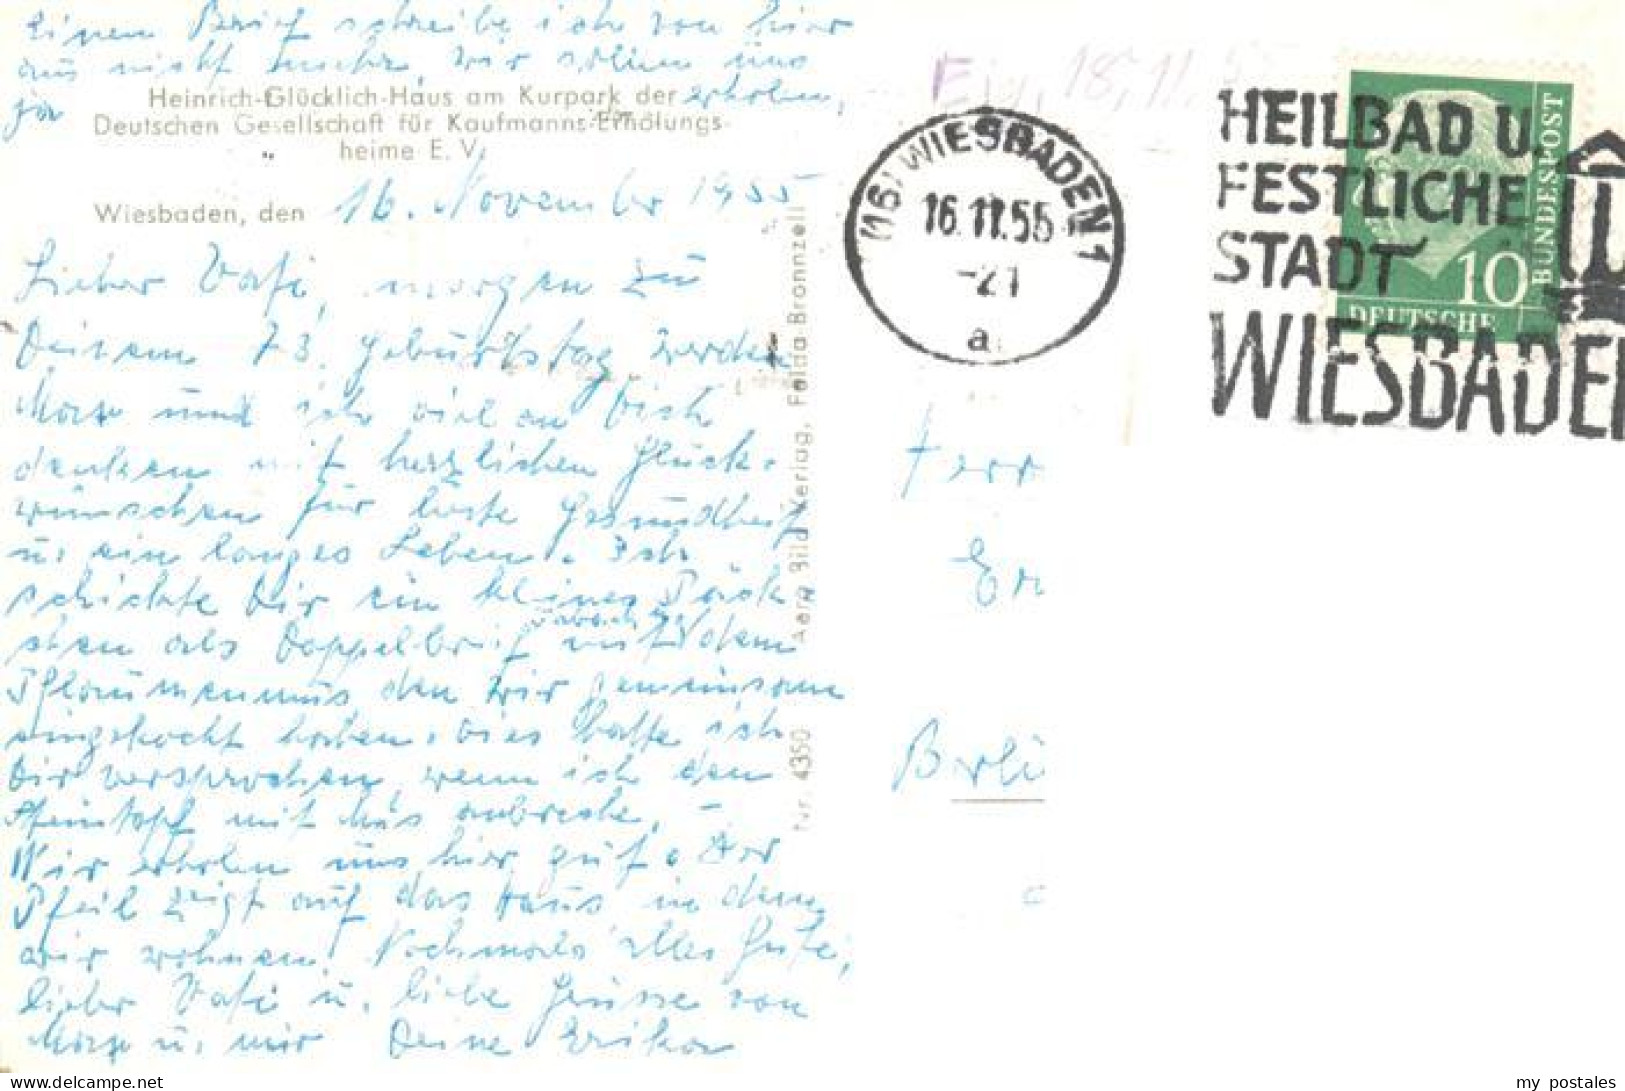 Einen Brief schreibe ich von hier
aus nicht mehr, wir sollen uns
ja erholen,
Heinrich-Glücklich-Haus am Kurpark der
Deutschen Gesellschaft für Kaufmanns-Erholungs-
heime E. V.
Wiesbaden, den 16. November 1955
Lieber Vati, morgen zu
Deinem 73. Geburtstag werden
und ich viel an Dich
denken mit herzlichen Glück-
wünschen für beste Gesundheit
u. ein langes Leben. Ich
schickte Dir ein kleines Päck-
chen als Doppelbrief mit dem
Pflaumenmus den wir gemeinsam
eingekocht haben. Dies hatte ich
Dir versprochen, wenn ich den
Steintopf mit Mus anbreche. –
Wir erholen uns hier gut. Der
Pfeil zeigt auf das Haus in dem
wir wohnen. Nochmals alles Gute,
lieber Vati u. liebe Grüsse von
u. mir Deine Erika
Nr. 4350 Aero-Bild-Verlag, Fulda-Bronnzell
Eig. 18.11.
(16) WIESBADEN 1
16.11.55
-21
a
HEILBAD U.
FESTLICHE
STADT
WIESBADEN
DEUTSCHE
BUNDESPOST
10
Herr
Er
Berli
my postales